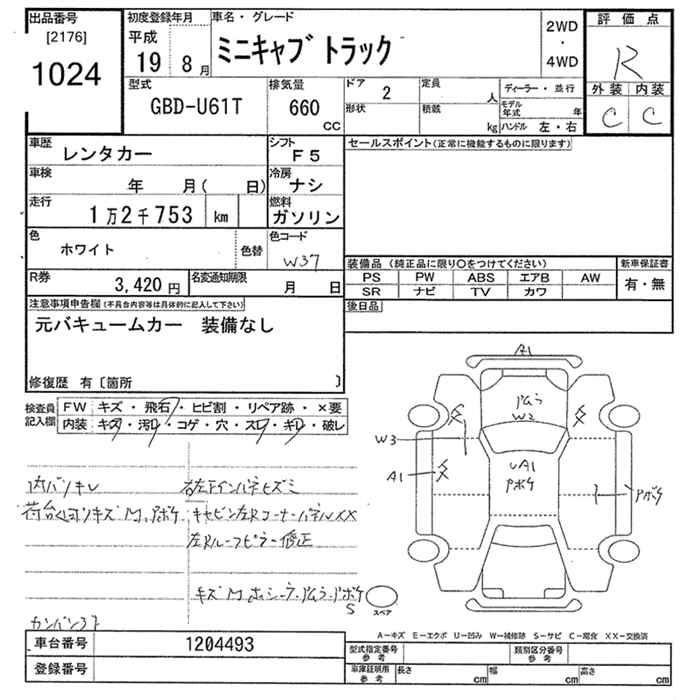 出品番号
[2176]
1024
初度登録年月
平成
19 8月
車名・グレード
ミニキャブ トラック
2WD
・
4WD
評価点
R
外装 内装
C C
型式
GBD-U61T
排気量
660
CC
ドア 2
形状
定員 人
積載 kg
ディーラー・並行
モデル年式 年
ハンドル 左・右
車歴 レンタカー
シフト F5
車検 年 月( 日)
冷房 ナシ
走行 1万2千753 km
燃料 ガソリン
色 ホワイト
色替
色コード W37
R券 3,420円
名変通知期限 月 日
セールスポイント(正常に機能するものに限ります)
装備品 (純正品に限り○をつけてください)
PS PW ABS エアB AW
SR ナビ TV カワ
新車保証書
有・無
後日品
注意事項申告欄(不具合内容等は具体的に記入して下さい)
元バキュームカー 装備なし
修復歴 有〔箇所 〕
検査員記入欄
FW キズ・飛石・ヒビ割・リペア跡・×要
内装 キズ・汚れ・コゲ・穴・スレ・キレ・破レ
内バンキレ
左Rルーフピラー修正
A1
W2
W3
A1
UA1
スペア
A－キズ E－エクボ U－凹み W－補修跡 S－サビ C－腐食 XX－交換済
車台番号 1204493
登録番号
型式指定番号 参考
類別区分番号 参考
車庫証明用 参考
長さ cm
幅 cm
高さ cm